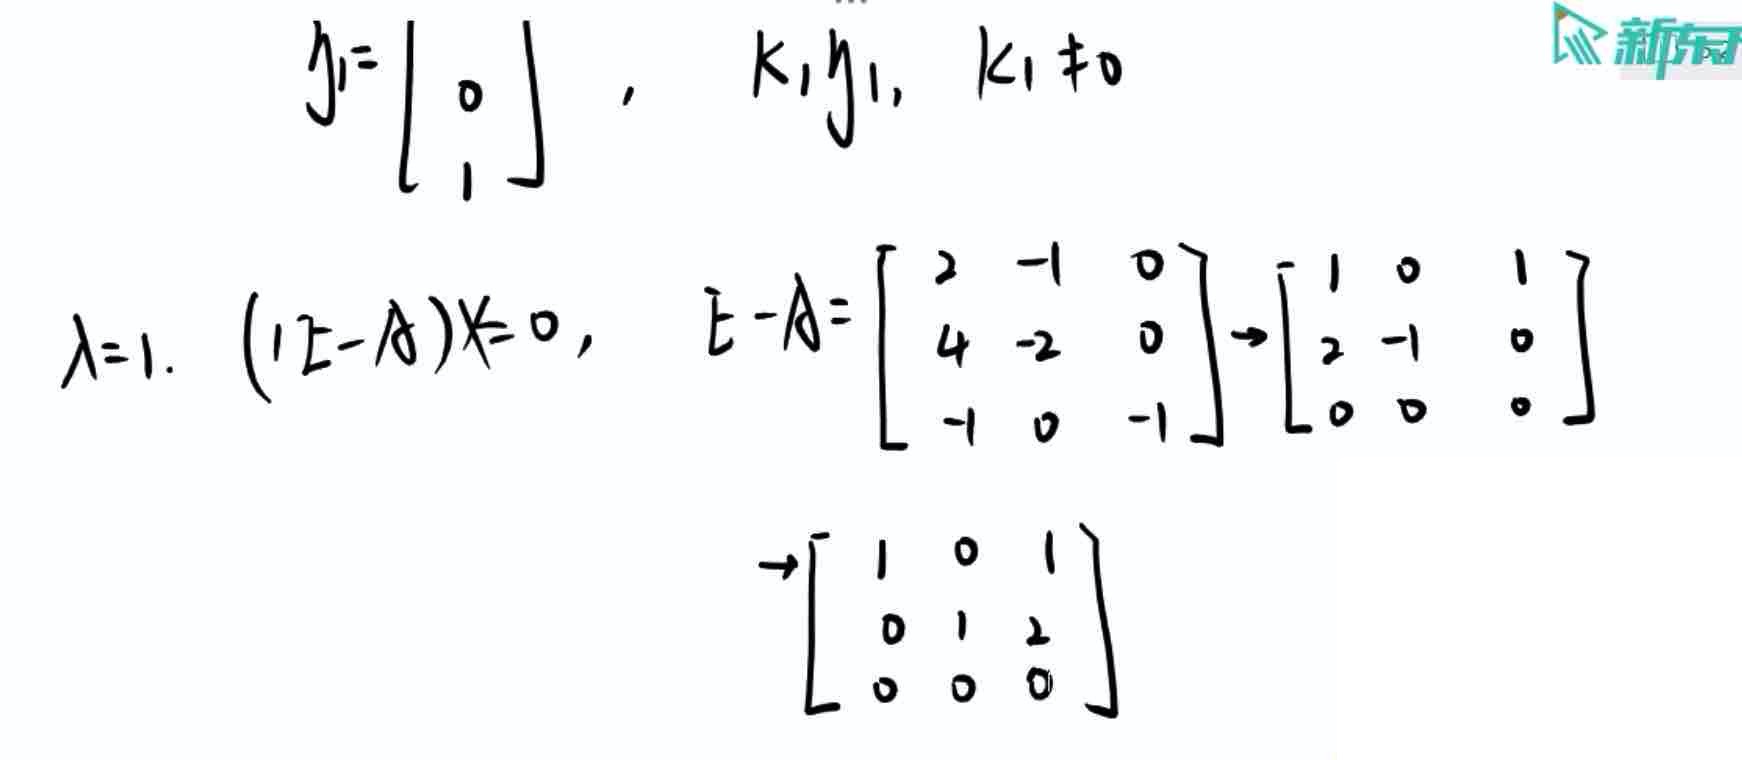 η₁=[0 1], k₁η₁, k₁≠0
新东方
λ=1. (1E-A)X=0, E-A=[2 -1 0; 4 -2 0; -1 0 -1]→[1 0 1; 2 -1 0; 0 0 0]
→[1 0 1; 0 1 2; 0 0 0]